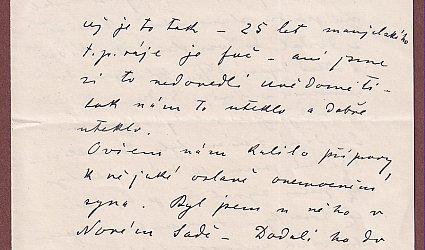 už je to tak – 25 let manželského
t.p. ráje je fuč – ani jsme
si to nedovedli uvědomiti –
tak nám to uteklo a dobře
uteklo.
Ovšem nám kalilo přípravy
k nějaké oslavě onemocnění
syna. Byl jsem u něho v
Novém Sadě – Dodali ho do